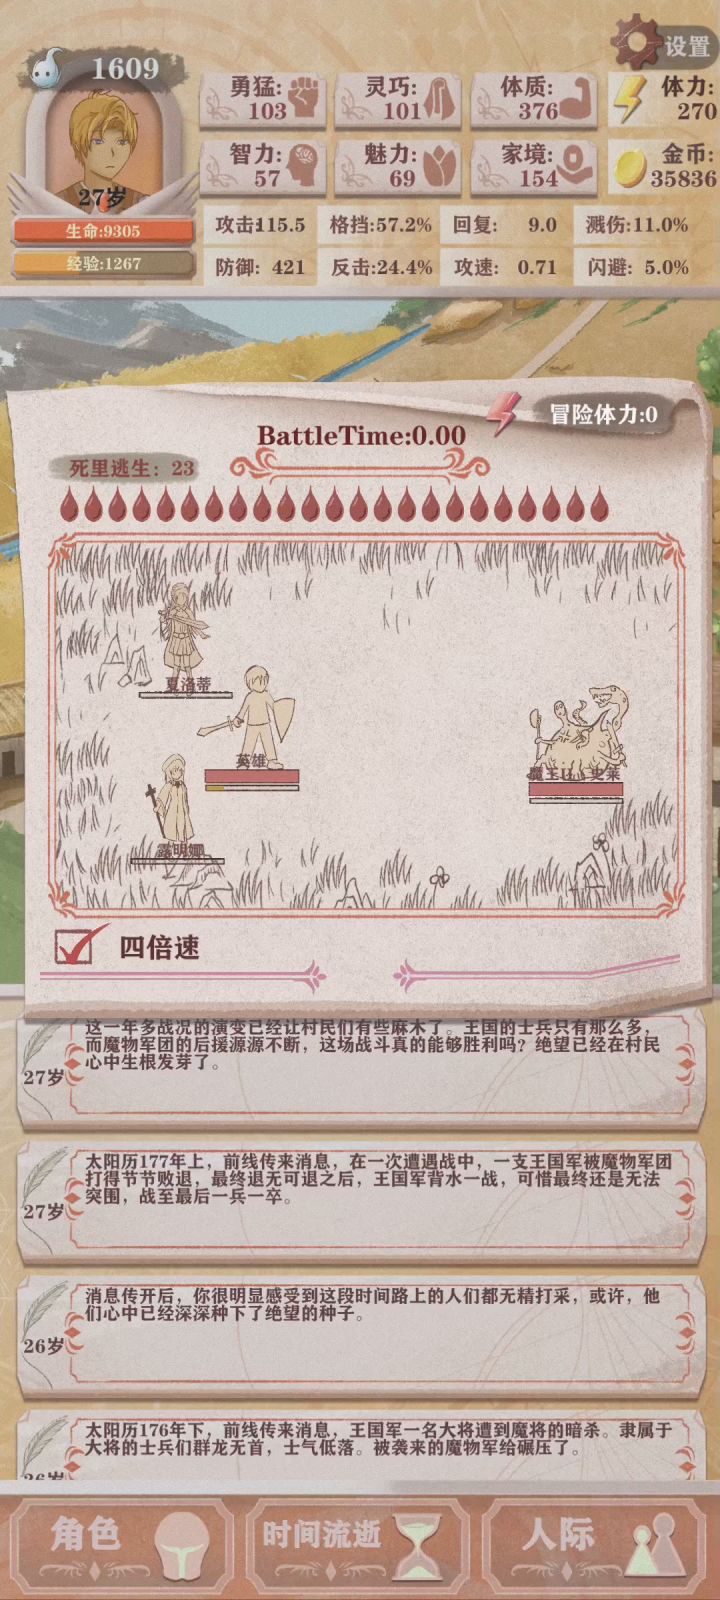 1609
设置
勇猛:
103
灵巧:
101
体质:
376
体力:
270
智力:
57
魅力:
69
家境:
154
金币:
35836
27岁
生命:9305
经验:1267
攻击:115.5
格挡:57.2%
回复: 9.0
溅伤:11.0%
防御: 421
反击:24.4%
攻速: 0.71
闪避: 5.0%
冒险体力:0
BattleTime:0.00
死里逃生: 23
夏洛蒂
英雄
露明娜
四倍速
这一年多战况的演变已经让村民们有些麻木了。王国的士兵只有那么多,
而魔物军团的后援源源不断，这场战斗真的能够胜利吗？绝望已经在村民
心中生根发芽了。
27岁
太阳历177年上，前线传来消息，在一次遭遇战中，一支王国军被魔物军团
打得节节败退，最终退无可退之后，王国军背水一战，可惜最终还是无法
突围，战至最后一兵一卒。
27岁
消息传开后，你很明显感受到这段时间路上的人们都无精打采，或许，他
们心中已经深深种下了绝望的种子。
26岁
太阳历176年下，前线传来消息，王国军一名大将遭到魔将的暗杀。隶属于
大将的士兵们群龙无首，士气低落。被袭来的魔物军给碾压了。
26岁
角色
时间流逝
人际